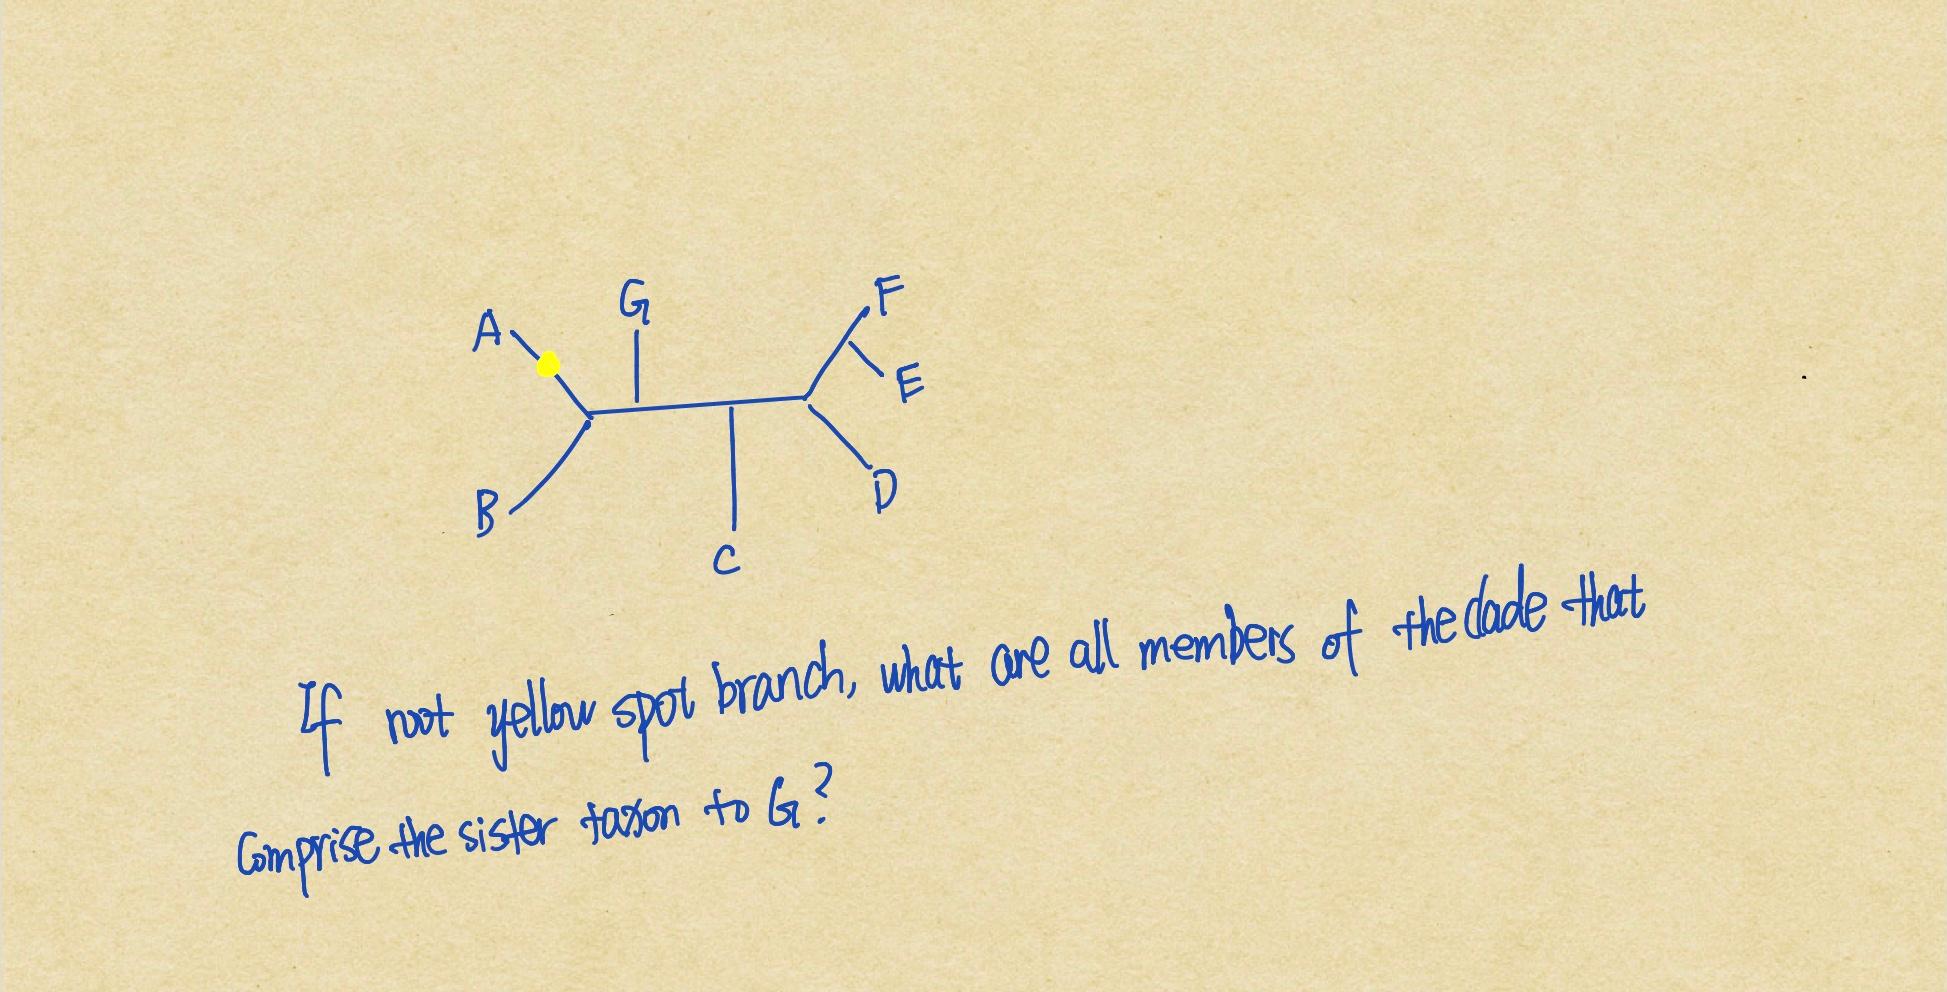 G
F
A
E
B
D
C
If root yellow spot branch, what are all members of the clade that
Comprise the sister taxon to G?